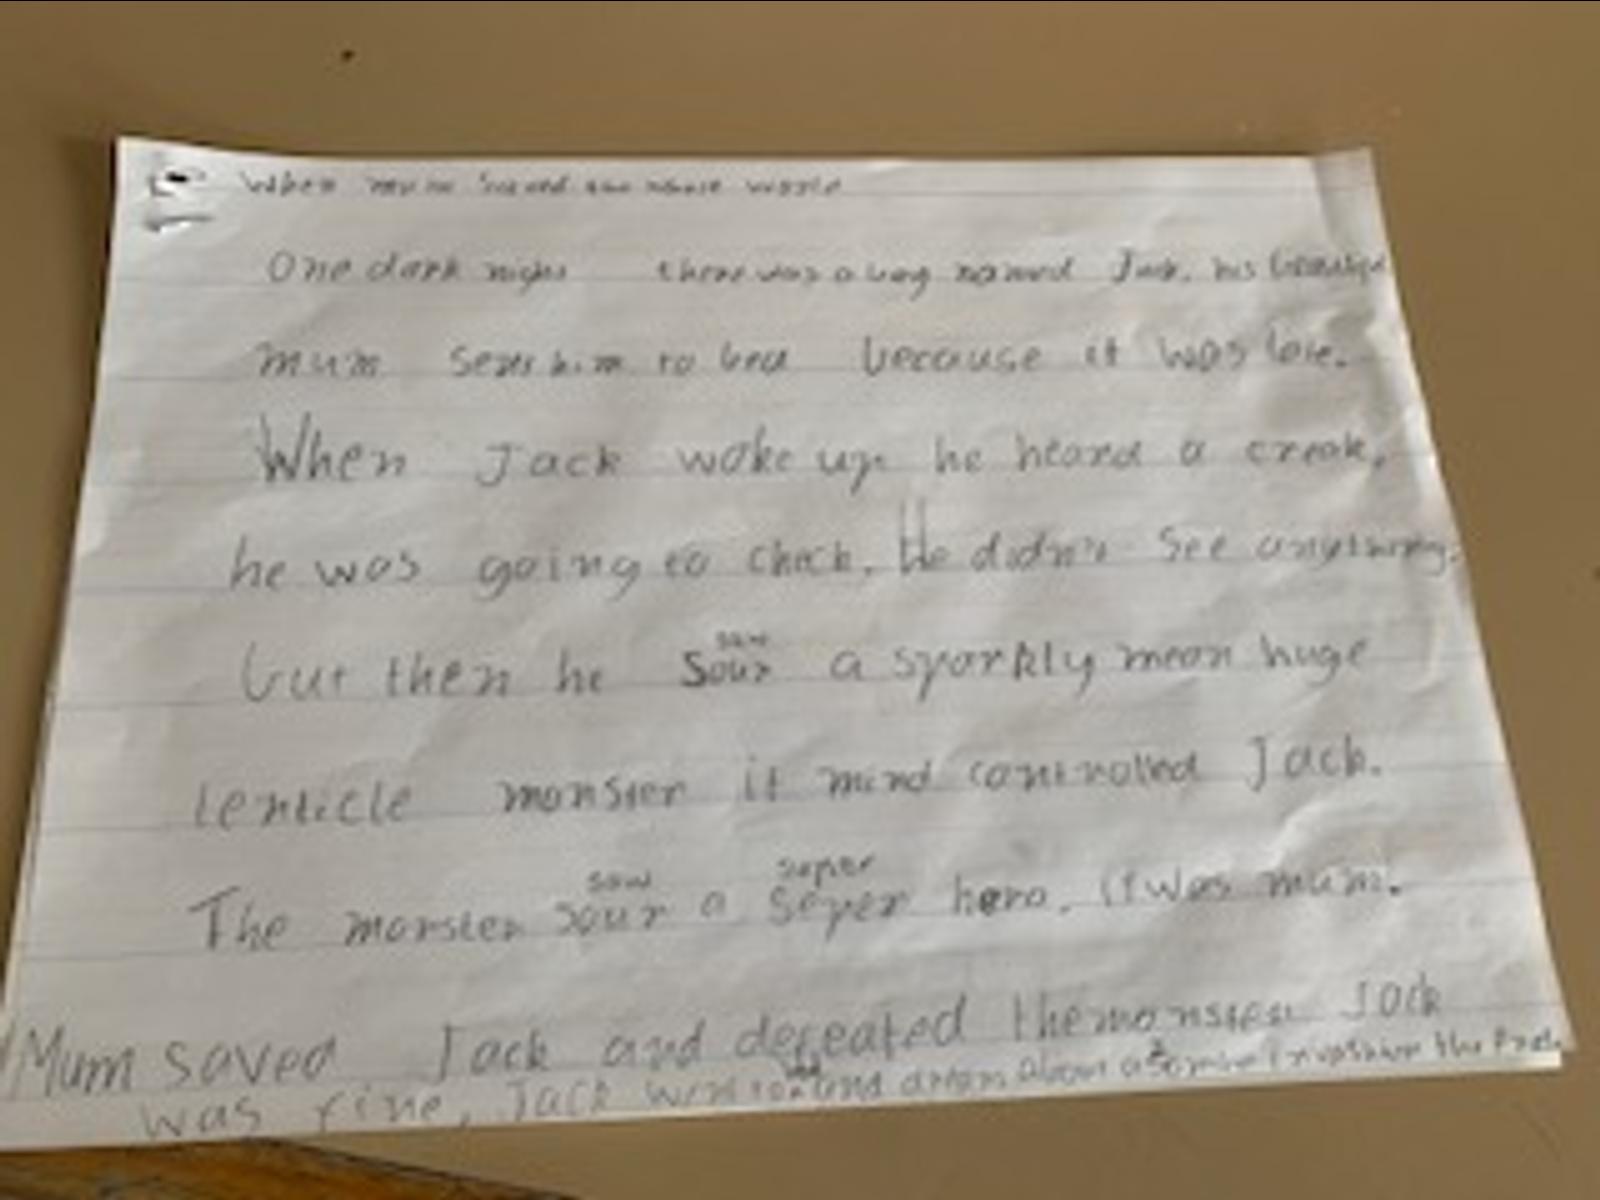 When mum saved the whole world
One dark night there was a boy named Jack. his beautiful
mum sent him to bed because it was late.
When Jack woke up he heard a creak,
he was going to check. He didn't see anything.
but then he saw sour a sparkly mean huge
tenticle monster it mind controlled Jack.
The monster saw sour a super soper hero. it was mum.
Mum saved Jack and defeated the monster Jack
was fine, Jack went to and dream about a